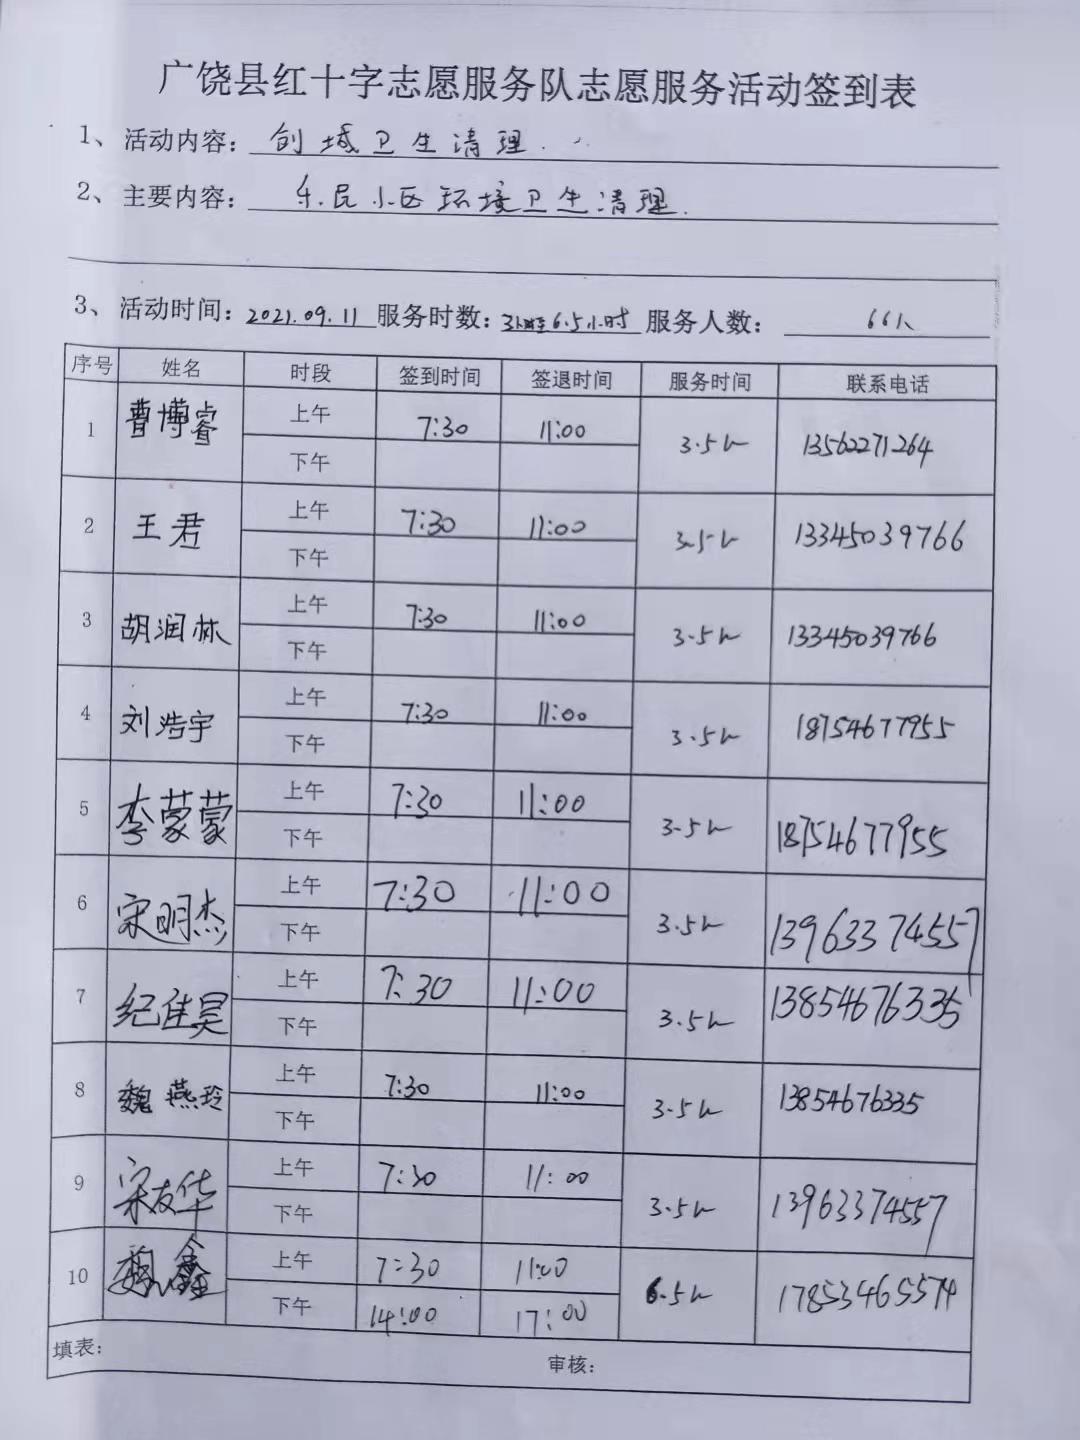 广饶县红十字志愿服务队志愿服务活动签到表
1、活动内容：创城卫生清理.
2、主要内容：乐民小区环境卫生清理.
3、活动时间：2021.09.11 服务时数：6.5小时 服务人数：66人
序号 姓名 时段 签到时间 签退时间 服务时间 联系电话
1 曹博睿 上午 7:30 11:00 3.5h 13562271264
下午
2 王君 上午 7:30 11:00 3.5h 13345039766
下午
3 胡润林 上午 7:30 11:00 3.5h 13345039766
下午
4 刘浩宇 上午 7:30 11:00 3.5h 18754677955
下午
5 李蒙蒙 上午 7:30 11:00 3.5h 18754677955
下午
6 宋明杰 上午 7:30 11:00 3.5h 13963374557
下午
7 纪佳昊 上午 7:30 11:00 3.5h 13854676335
下午
8 魏燕玲 上午 7:30 11:00 3.5h 13854676335
下午
9 宋友华 上午 7:30 11:00 3.5h 13963374557
下午
10 魏鑫 上午 7:30 11:00 6.5h 17853465574
下午 14:00 17:00
填表： 审核：